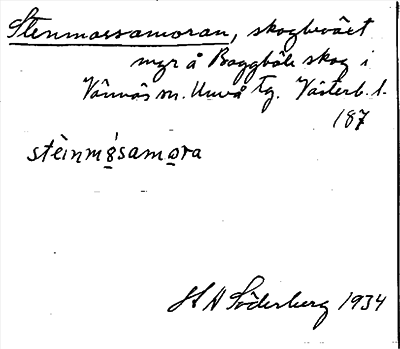 Stenmossamoran, skogbeväxt
myr å Baggböle skog i
Vännäs sn. Umeå tg. Västerb. l.
187
stèinmåsamora
H A Söderberg 1934